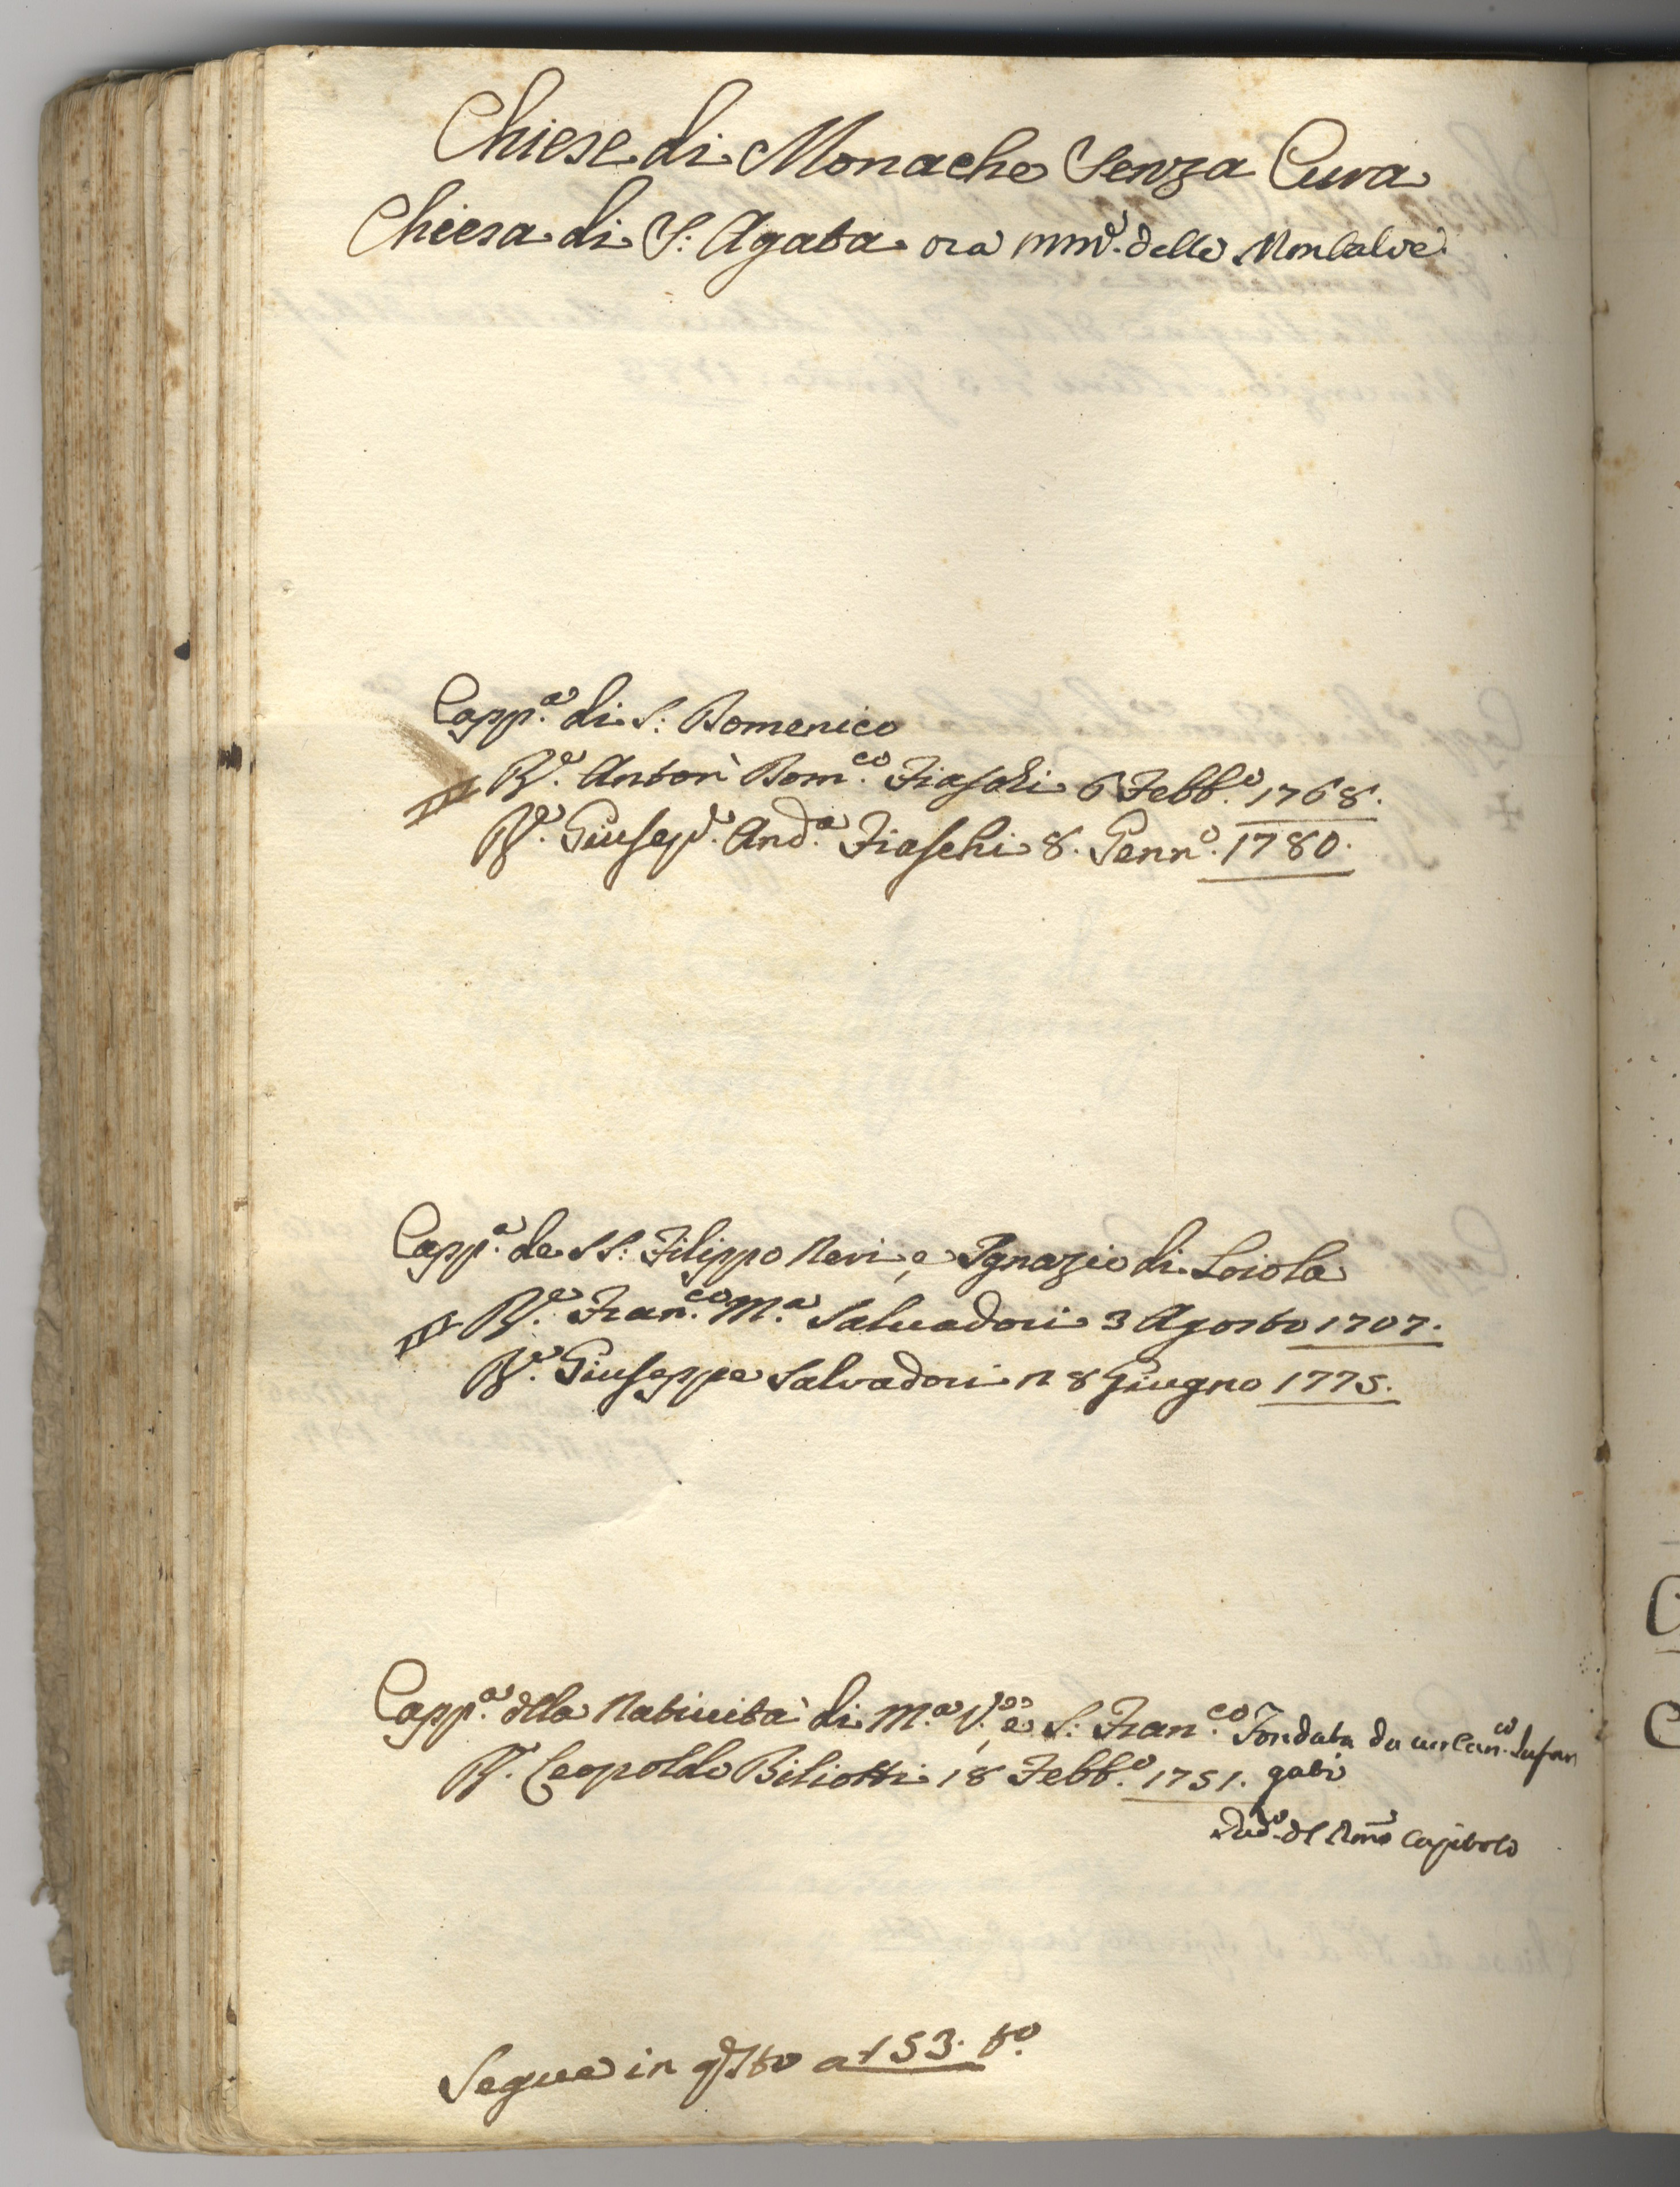 Chiese di Monache Senza Cura
Chiesa di S: Agata ora delle Montalve
Capp.a di S: Domenico
R.e Anton Dom.co Fiaschi 6 Febb.o 1768.
R.e Giusep.e And.a Fiaschi 8. Genn.o 1780.
Capp.a de SS: Filippo Neri, e Ignazio di Loiola
R.e Fran.co M.a Salvadori 3 Agosto 1707.
R.e Giuseppe Salvadori 8 Giugno 1775.
Capp.a dlla Natività di M.a V.e, e S: Fran.co Fondata da un Can.co
R.e Leopoldo Biliotti 18 Febb.o 1751.
Capitolo
Segue in qsto a 153. to.